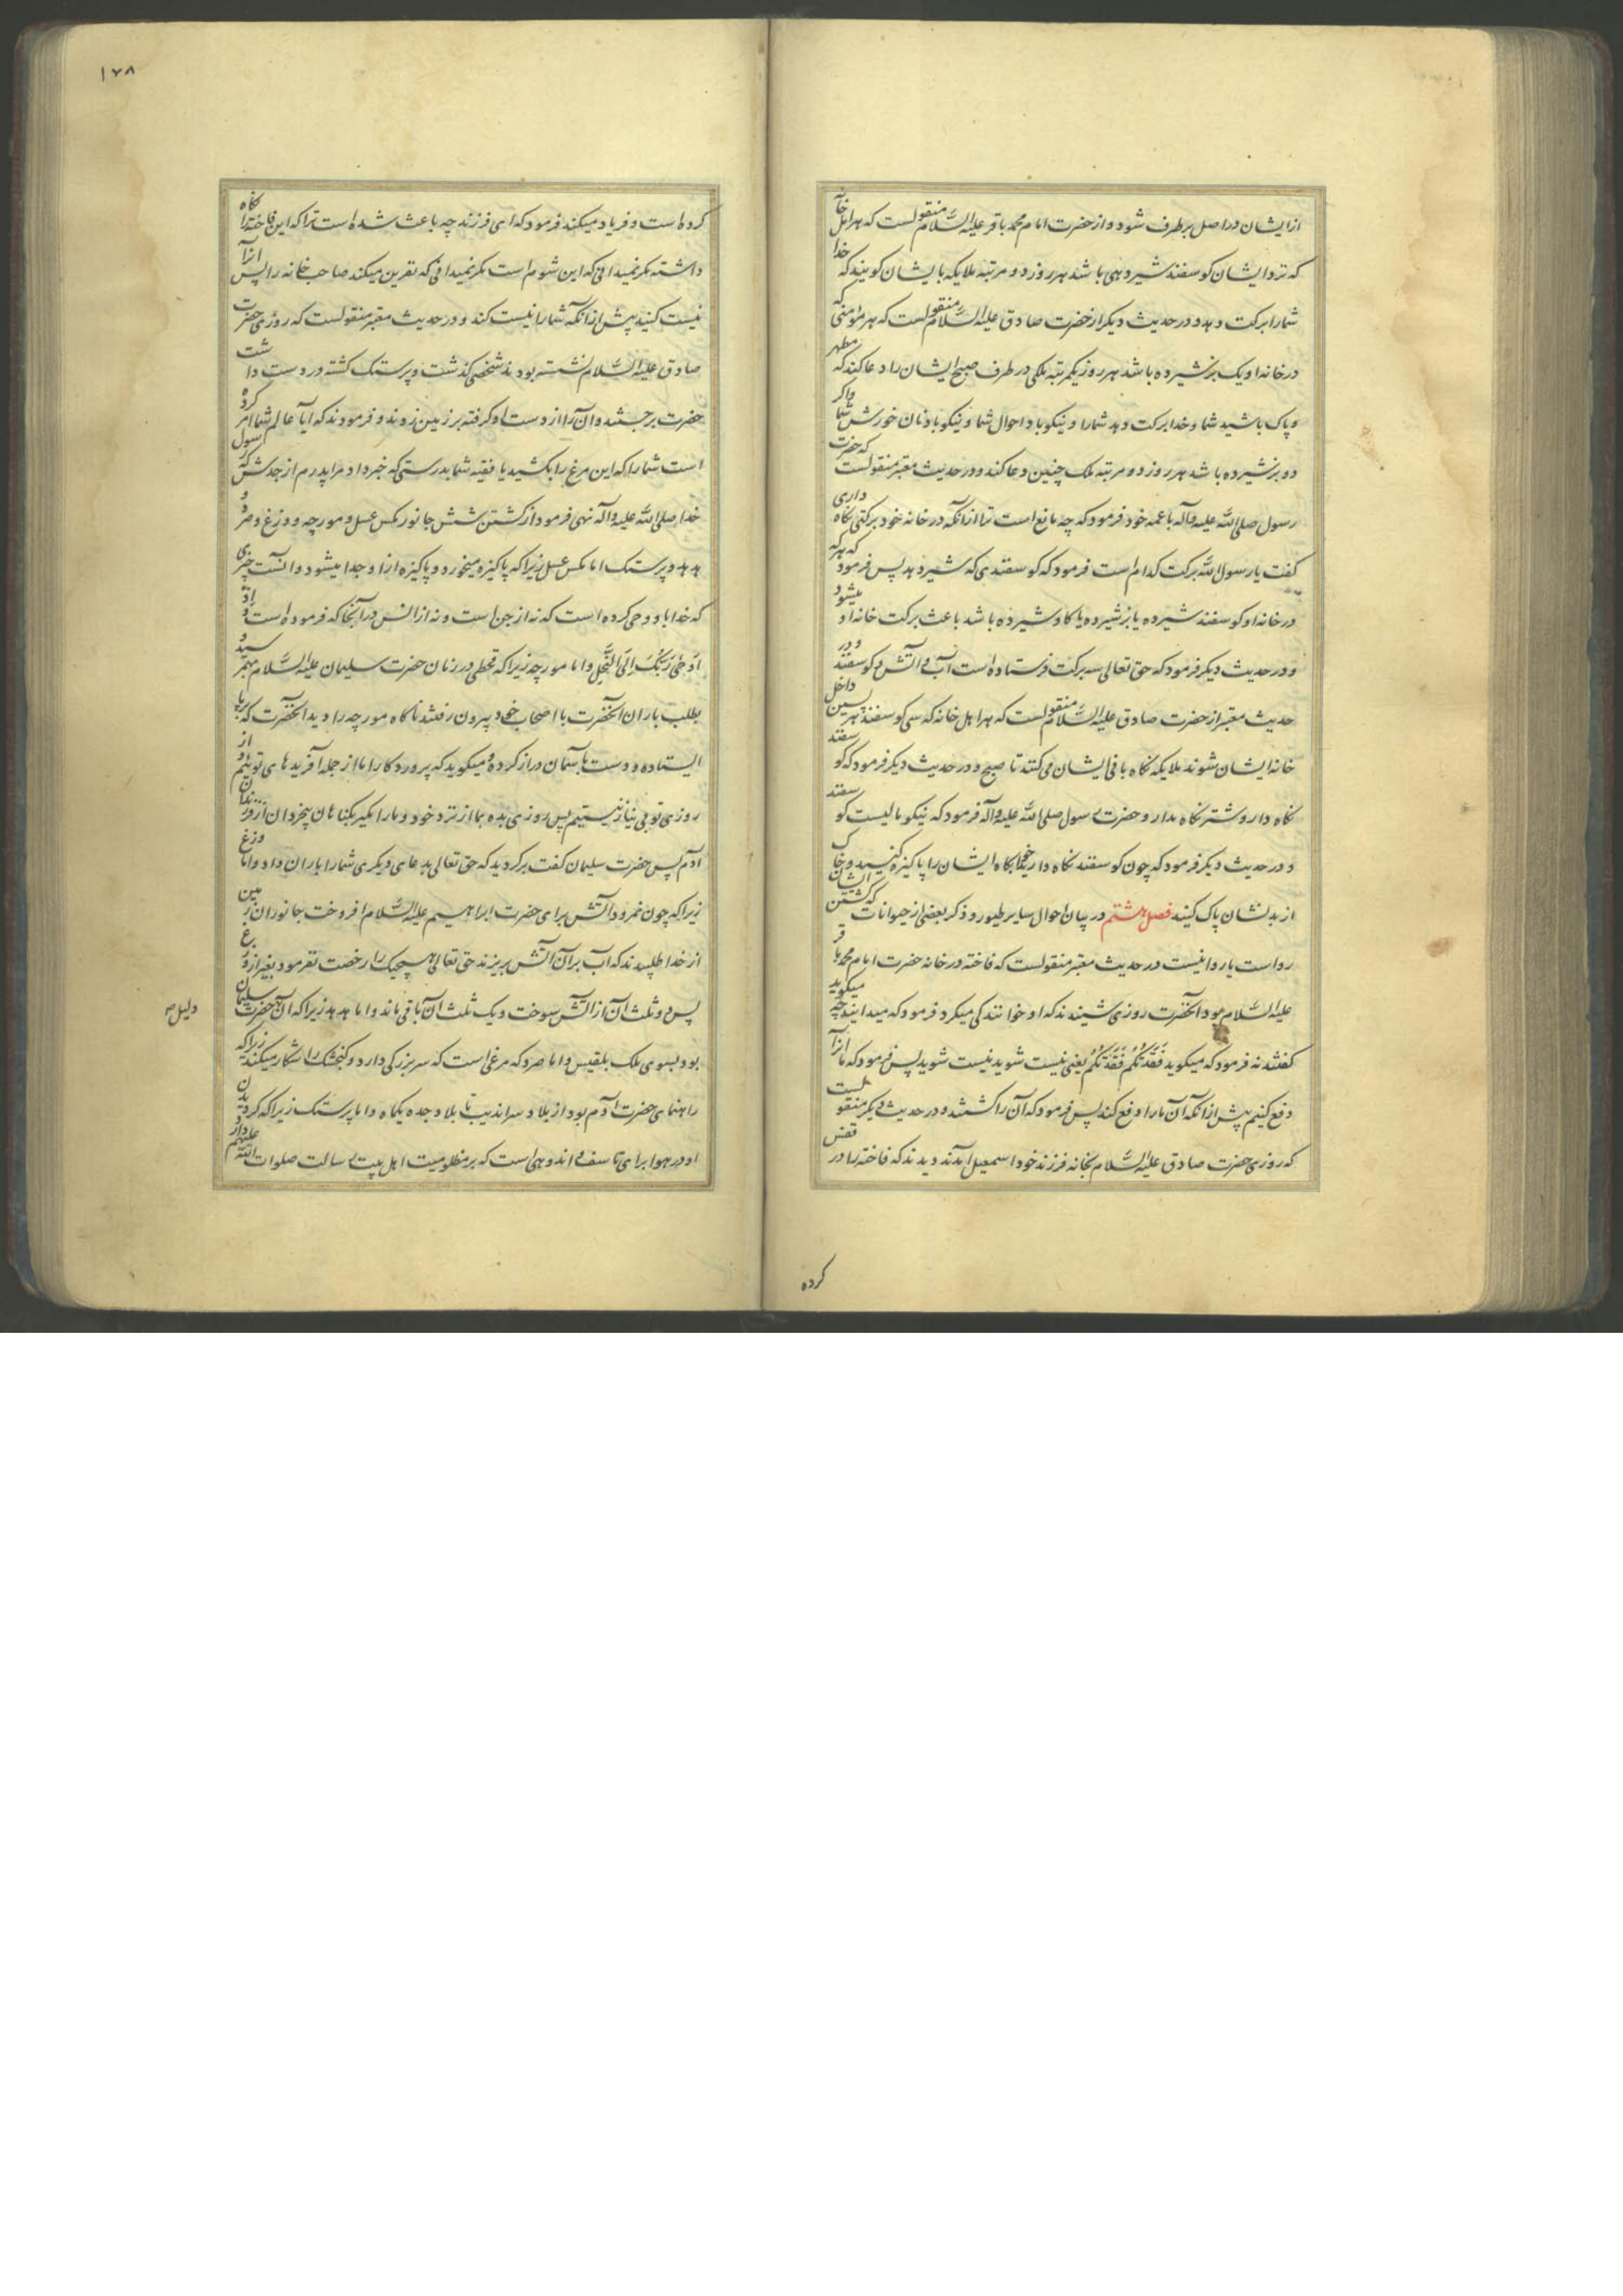 ازایشان در اصل برطرف شود و از حضرت امام محمد باقر علیه السّلام منقولست که هر اهل خانه
که نزد ایشان کوسفند شیردهی باشد هر روز دو مرتبه ملایکه با یشان کویند که خدا
شمارا برکت دهد و در حدیث دیکر از حضرت صادق علیه السّلام منقولست که هر مؤمنی که
در خانه او یک بز شیرده باشد هر روز یکمرتبه ملکی در طرف صبح ایشان را دعا کند که مطهر
و پاک باشید شما و خدا برکت دهد شمارا و نیکو باد احوال شما و نیکو باد نان خورش شما و اکر
دو بز شیرده باشد هر روز دو مرتبه ملک چنین دعا کند و در حدیث معتبر منقولست که حضرت
رسول صلی الله علیه وآله با عمه خود فرمود که چه مانع است ترا از انکه در خانه خود برکتی نکاه داری
کفت یا رسول الله برکت کدام است فرمود که کوسفندی که شیر دهد پس فرمود که هرکه
در خانه او کوسفند شیرده یا بز شیرده یا کاو شیرده باشد باعث برکت خانه او میشود
و در حدیث دیکر فرمود که حق تعالی سه برکت فرستاده است آب و آتش و کوسفند و در
حدیث معتبر از حضرت صادق علیه السّلام منقولست که هر اهل خانه که سی کوسفند هر پسین داخل
خانه ایشان شوند ملایکه نکاه بانی ایشان می کنند تا صبح و در حدیث دیکر فرمود که کوسفند
نکاه دار و شتر نکاه مدار و حضرت رسول صلی الله علیه وآله فرمود که نیکو مالیست کوسفند
و در حدیث دیکر فرمود که چون کوسفند نکاه دارید خوابکاه ایشان را پاکیزه کنید و خاک
از بدنشان پاک کنید فصل هشتم در بیان احوال سایر طیور و ذکر بعضی از حیوانات که کشتن ایشان
رواست یا روا نیست در حدیث معتبر منقولست که فاخته در خانه حضرت امام محمد باقر
علیه السّلام بود انحضرت روزی شنیدند که او خوانندکی میکرد فرمود که میدانید چه میکوید
کفتند نه فرمود که میکوید فَقَدتُکُم فَقَدتُکُم یعنی نیست شوید نیست شوید پس فرمود که ما انرا
دفع کنیم پیش از انکه آن مارا دفع کند پس فرمود که آن را کشتند و در حدیث دیکر منقولست
که روزی حضرت صادق علیه السّلام بخانه فرزند خود اسمعیل آمدند دیدند که فاخته را در قفس
کرده
۱۷۸
کرده است و فریاد میکند فرمود که ای فرزند چه باعث شده است ترا که این فاخته را نکاه
داشته مکر نمیدانی که این شوم است مکر نمیدانی که نفرین میکند صاحب خانه را پس انرا
نیست کنید پیش از انکه شمارا نیست کند و در حدیث معتبر منقولست که روزی حضرت
صادق علیه السّلام نشسته بودند شخصی کذشت و پرستک کشته در دست داشت
حضرت برجستند و آن را از دست او کرفته بر زمین زدند و فرمودند که ایا عالم شما امر کرده
است شمارا که این مرغ را بکشید یا فقیه شما بدرستی که خبر داد مرا پدرم از جدش که رسول
خدا صلی الله علیه وآله نهی فرمود از کشتن شش جانور مکس عسل و مورچه و وزغ و صرد و
هدهد و پرستک اما مکس عسل زیرا که پاکیزه میخورد و پاکیزه از او جدا میشود و آنست چیزی
که خدا باو وحی کرده است که نه از جن است و نه از انس در آنجا که فرموده است وَ
اَوْحٰی رَبُّکَ اِلَی النَّحْلِ و اما مورچه زیرا که قحطی در زمان حضرت سلیمان علیه السّلام بهم رسید و
بطلب باران انحضرت با اصحاب خود بیرون رفتند ناکاه مورچه را دید انحضرت که برپا
ایستاده و دست بآسمان دراز کرده و میکوید که پروردکارا ما از جمله آفریدهای توئیم و از
روزی تو بی نیاز نیستیم پس روزی بده بما از نزد خود و مارا مکیر بکناهان بیخردان از فرزندان
آدم پس حضرت سلیمان کفت برکردید که حق تعالی بدعای دیکری شمارا باران داد و اما وزغ
زیرا که چون نمرود آتش برای حضرت ابراهیم علیه السّلام افروخت جانوران زمین
از خدا طلبیدند که آب بر آن آتش بریزند حق تعالی هیچیک را رخصت نفرمود بغیر از وزغ
پس دو ثلث آن از آتش سوخت و یک ثلث آن باقی ماند و اما هدهد زیرا که آن حضرت سلیمان
دلیل
بود بسوی ملک بلقیس و اما صرد که مرغی است که سر بزرکی دارد و کنجشک را شکار میکند زیرا که
راهنمای حضرت آدم بود از بلاد سراندیب تا بلاد جده یکماه و اما پرستک زیرا که کردیدن
او در هوا برای تاسف و اندوهی است که بر مظلومیت اهل بیت رسالت صلوات الله علیهم دارد